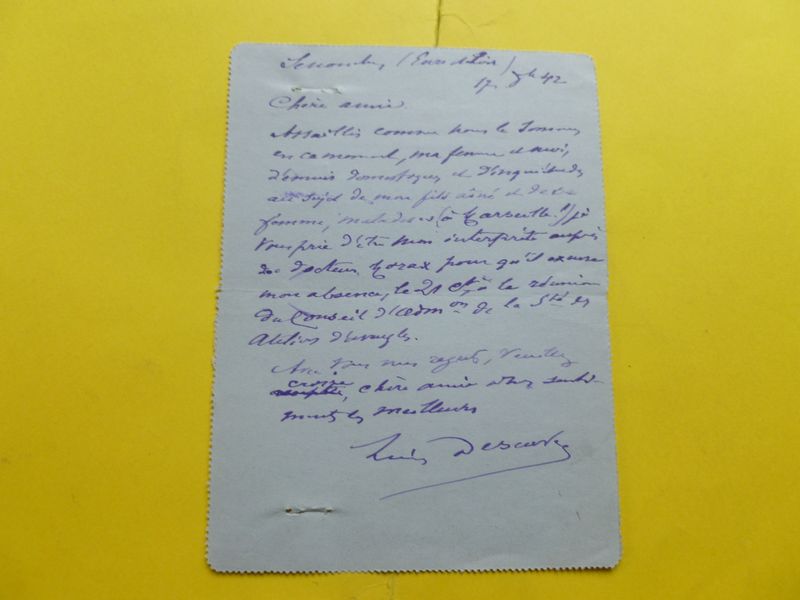 Senonches (Eure et Loir)
17 42
Chère amie
Assaillis comme nous le sommes
en ce moment, ma femme et moi,
d'ennuis domestiques et d'inquiétudes
au sujet de mon fils aîné et de sa
femme, malades (à Marseille!) je
vous prie d'être mon interprète auprès
du docteur Morax pour qu'il excuse
mon absence, le 21 ct, à la réunion
du Conseil d'adm on de la Sté des
Ateliers d'aveugles.
Avec tous mes regrets, veuillez
croire, chère amie à mes senti-
ments les meilleurs
Lucien Descaves